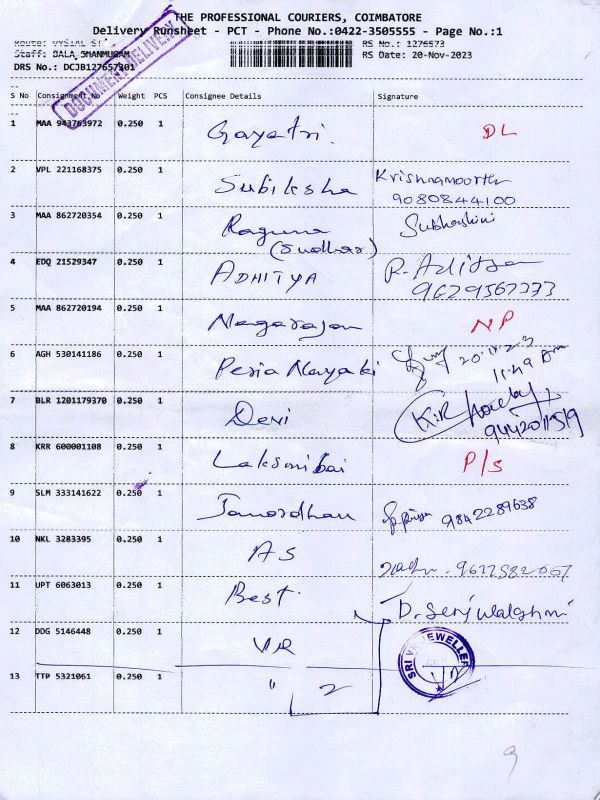 THE PROFESSIONAL COURIERS, COIMBATORE
Delivery Runsheet - PCT - Phone No.:0422-3505555 - Page No.:1
RS No.: 1276573
Staff: BALA SHANMUGAM RS Date: 20-Nov-2023
DRS No.: DCJB127657301
DOCUMENT DELIVERY
S No Consignment No Weight PCS Consignee Details Signature
1 MAA 943763972 0.250 1 Gayatri. DL
2 VPL 221168375 0.250 1 Subiksha Krishnamoorthy
9080844100
3 MAA 862720354 0.250 1 Raguna Subhashini
(Sudhar)
4 EDQ 21529347 0.250 1 ADHITYA R. Aditya
9629567373
5 MAA 862720194 0.250 1 Nagarajan NP
6 AGH 530141186 0.250 1 Peria Nayaki 20.11.23
11.49 Am
7 BLR 1201179370 0.250 1 Devi K.R
9442011519
8 KRR 600001108 0.250 1 Laksmibai P/S
9 SLM 333141622 0.250 1 Janardhan 9842289638
10 NKL 3283395 0.250 1 AS
11 UPT 6063013 0.250 1 Best.
12 DDG 5146448 0.250 1 VR
SRI JEWELLER
13 TTP 5321061 0.250 1 " 2
9